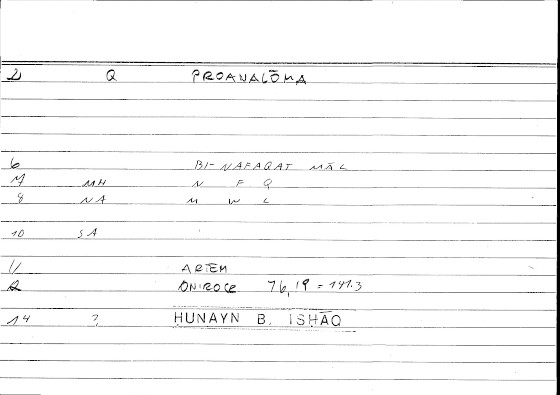 2 Q PROANALŌMA
6 BI-NAFAQAT MĀL
7 MH N F Q
8 NA M W L
10 SA
11 ARTEM
12 ONIROCR 76,19 = 141.3
14 ? HUNAYN B. ISḤĀQ